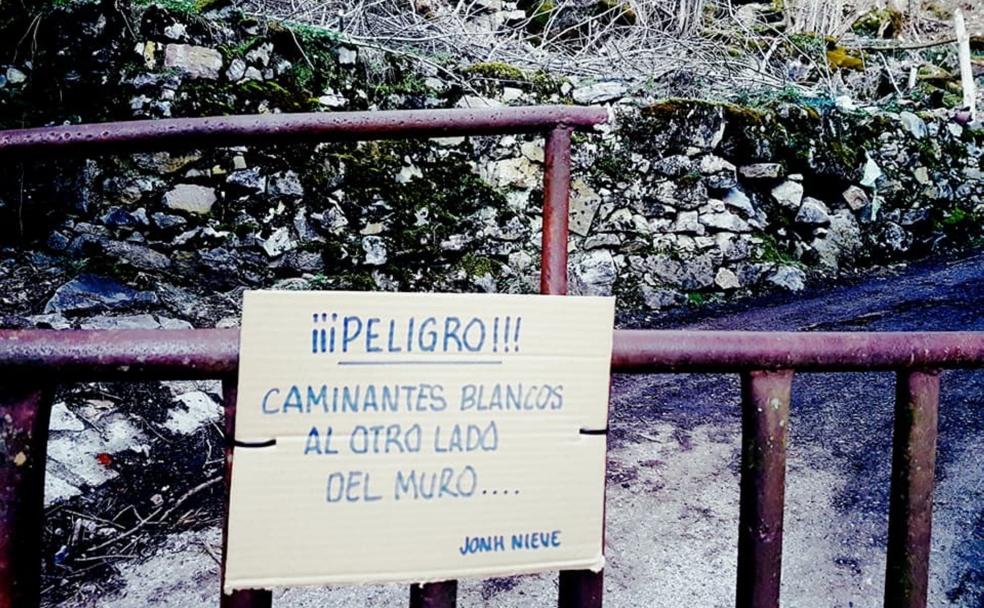 ¡¡¡PELIGRO!!!
CAMINANTES BLANCOS
AL OTRO LADO
DEL MURO....
JONH NIEVE